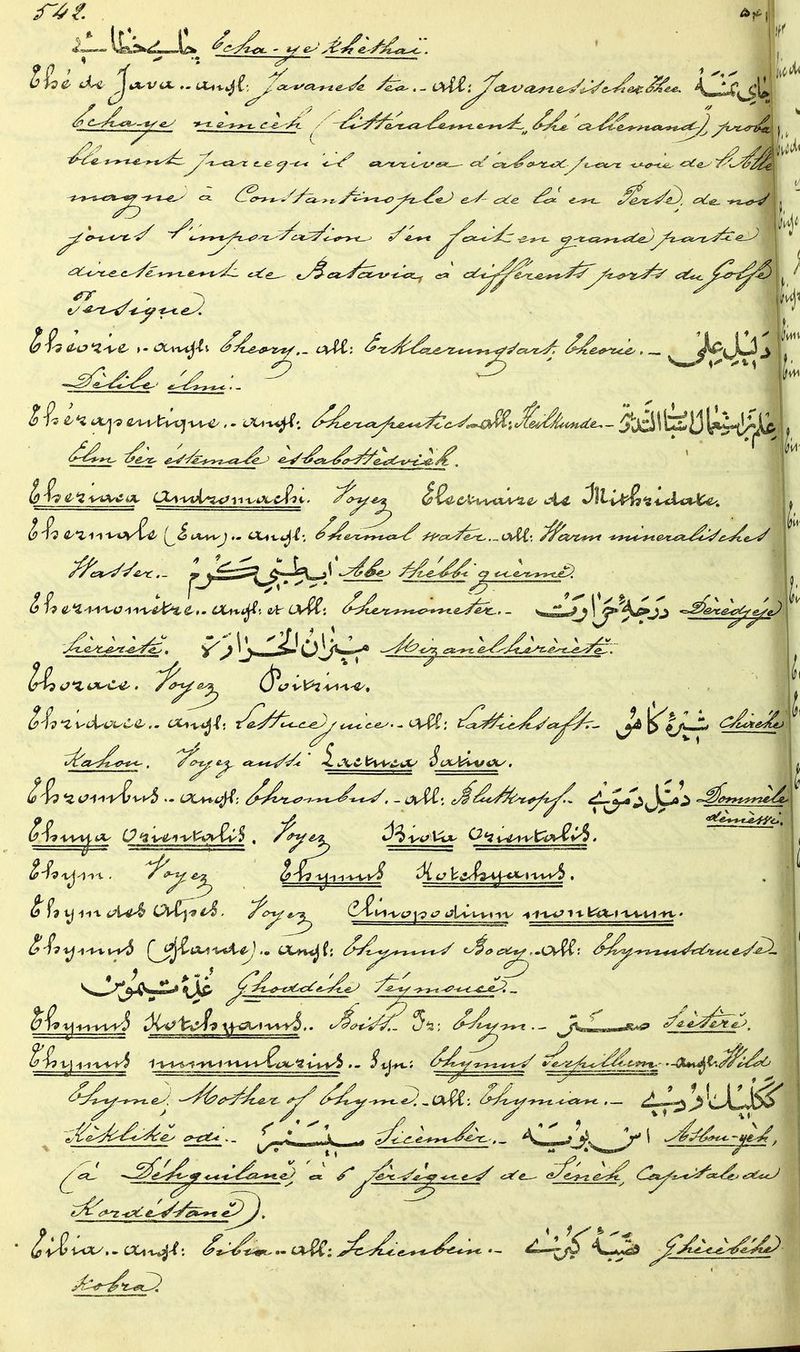 542.
Tcha-ye Khèthaï. چاے خطائے
Thé de Java.. Angl: Javanese tea.- All: Javanesischer Thee. چاے
Tcha-ye nèmcèh (littéralement, thé allemand), proba
blement parceque il arriva d'abord par voie de l'Alle
magne à Constantinople et de là en Perse, de nos
jours l'importation s'en fait en grande partie
directement de Batavia, à différents ports du Golfe
Persique.
Théorie.- Angl: Theory.- All: Erklaerungsart, Theorie.- دليل علمى
Dèlile élmi.-
Thérapeutique.- Angl: Therapeutics- All: Heilkunde.-
Elm bér estémale èsbabottèdaviéh.
Theriaca Andromachi. Voyez Electuaire de Mithridate.
Thermale (Eau).. Angl: Thermal water.- All: Warm mineralisches
Wasser.- Abe thébbi guèrme.
Thermomètre.. Angl: et All: Thermometer.- درجۀ حرارت Dèrèdjeye
hèrèrètè. ميزان الحرارة Mizanèlhèrèrètè.
Thoracce. Voyez Poitrine.
Thridace.. Angl: Lettuce juice.- All: Lattichsaft.- شيرۀ كاهو Chirèhe
Kahou. Voyez aussi Lactuca Sativa.
Thrombus.. Angl: Thrombus.- All: Blutkropf.- Dommèle
démèvvi.
Thuya Orientalis. Voyez Biota Orientalis.
Thym. Voyez Thymus Kotchyanus.
Thym des Alpes. Voyez Clinopodium montanum.
Thymus (Glande).. Angl: Thymus Body.- All: Thymusdruese.-
غدۀ تيموس Ghoddéhe téymouce.-
Thymus Kotchyanus.. Boiss. Fr: Thym.- Seètère.
Thymus nummularius.. Syn: Thymus Serpillum.- Angl: Wild
Thyme, Mother of Thyme.- All: Thymian.-
Kèklikè oti.- Sicèmbèr.-
(à Dèhguilane, à 6 fèrsègues de Sènèh, Capitale du
Kordéstane).
Tibia.. Angl: Tibia.- All: Schienbein.-
Kobra.